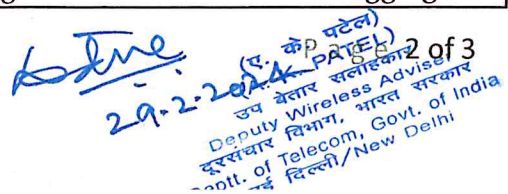 Page 2 of 3
29.2.2024
(ए. के पटेल)
PATEL)
उप बेतार सलाहकार
Deputy Wireless Adviser
दूरसंचार विभाग, भारत सरकार
Deptt. of Telecom, Govt. of India
नई दिल्ली/New Delhi